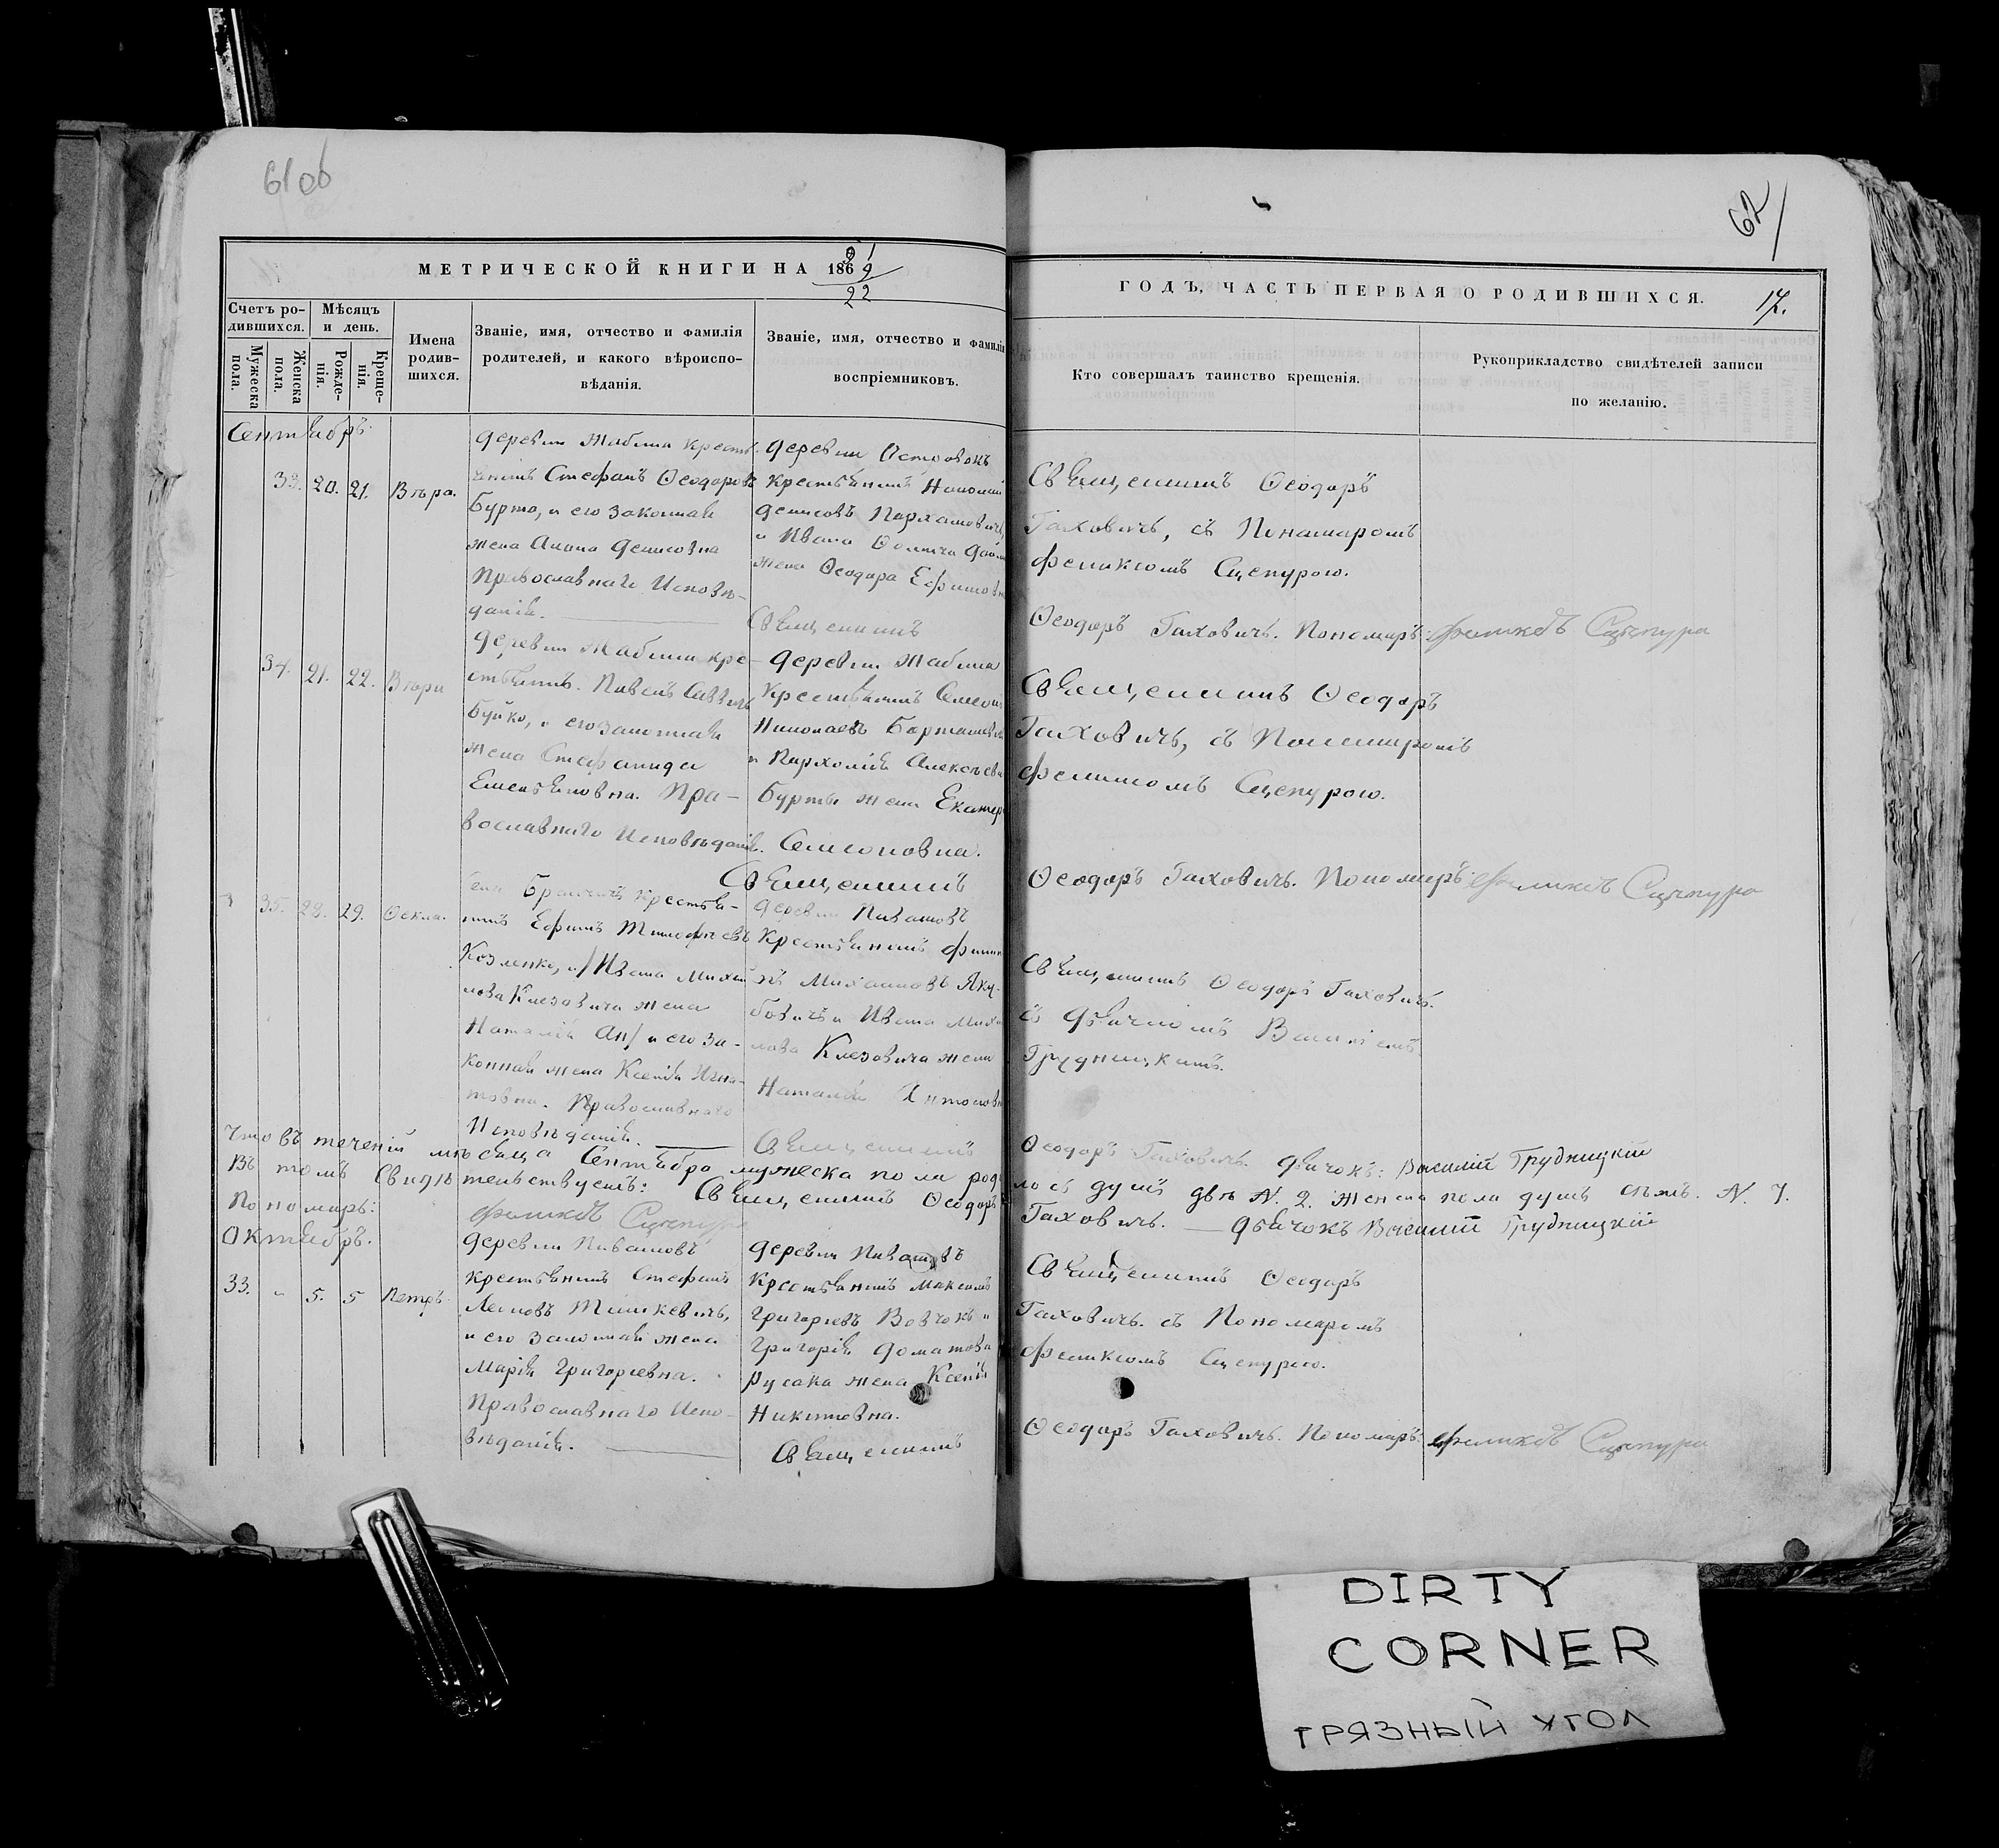 61 об
62
МЕТРИЧЕСКОЙ КНИГИ НА 1869
22
ГОДЪ, ЧАСТЬ ПЕРВАЯ О РОДИВШИХСЯ.
17.
Счетъ ро-
дившихся.
Мѣсяцъ
и день.
Мужеска
пола.
Женска
пола.
Рожде-
нія.
Креще-
нія.
Имена
родив-
шихся.
Званіе, имя, отчество и фамилія
родителей, и какого вѣроиспо-
вѣданія.
Званіе, имя, отчество и фамилія
воспріемниковъ.
Кто совершалъ таинство крещенія.
Рукоприкладство свидѣтелей записи
по желанію.
Сентябрь.
33. 20. 21. Вѣра.
деревни Жабина кресть-
янинъ Стефанъ Ѳеодоровъ
Бурто, и его законная
жена Анна Денисовна
Православнаго Исповѣ-
данія.
деревни
крестьянинъ
Денисовъ
и Ивана
жена Ѳеодора Ефимовна
Священникъ
Священникъ Ѳеодоръ
Гаховичъ, съ Понамаромъ
Феликсомъ Сцепурою.
Ѳеодоръ Гаховичъ. Пономарь: Феликсъ Сцепура
34. 21. 22. Вѣра
деревни Жабина кре-
стьянинъ. Павелъ Саввичъ
Буйко, и его законная
жена Стефанида
Емельяновна. Пра-
вославнаго Исповѣданія.
деревни Жабина
Крестьянинъ
Николаевъ
и Пархомія Алексѣева
Бурты жена
Семеоновна.
Священникъ
Священникъ Ѳеодоръ
Гаховичъ, съ Пономаромъ
Феликсомъ Сцепурою.
Ѳеодоръ Гаховичъ. Пономарь: Феликсъ Сцепура
35. 28. 29. Ѳекла.
крестья-
нинъ Ефимъ Тимофѣевъ
Козленко, и /Ивана Михай
лова Клезовича жена
Наталія Ан/ и его за-
конная жена Ксенія Игна-
товна. Православнаго
Исповѣданія.
деревни
Крестьянинъ
Михаиловъ Яку-
бовичъ и Ивана
лова Клезовича жена
Наталія Антоновна
Священникъ
Священникъ Ѳеодоръ Гаховичъ.
съ дьячкомъ Василіемъ
Грудницкимъ.
Ѳеодоръ Гаховичъ. дьячокъ: Василій Грудницкій
Что въ теченіи мѣсяца Сентября мужеска пола роди
лось душъ двѣ N. 2. женска пола душъ семь. N. 7.
Въ томъ свидѣтельствуемъ: Священникъ Ѳеодоръ
Гаховичъ. — дьячокъ Василій Грудницкій
Пономарь: Феликсъ Сцепура
Октябрь.
33. " 5. 5 Петръ.
деревни
крестьянинъ Стефанъ
и его законная жена
Марія Григорьевна.
Православнаго Испо-
вѣданія.
деревни
Крестьянинъ Максимъ
Григорьевъ Вовчокъ и
Григорія Доматова
Русака жена Ксенія
Никитовна.
Священникъ
Священникъ Ѳеодоръ
Гаховичъ. съ Пономаромъ
Феликсомъ Сцепурою.
Ѳеодоръ Гаховичъ. Пономарь: Феликсъ Сцепура
DIRTY
CORNER
ГРЯЗНЫЙ УГОЛ